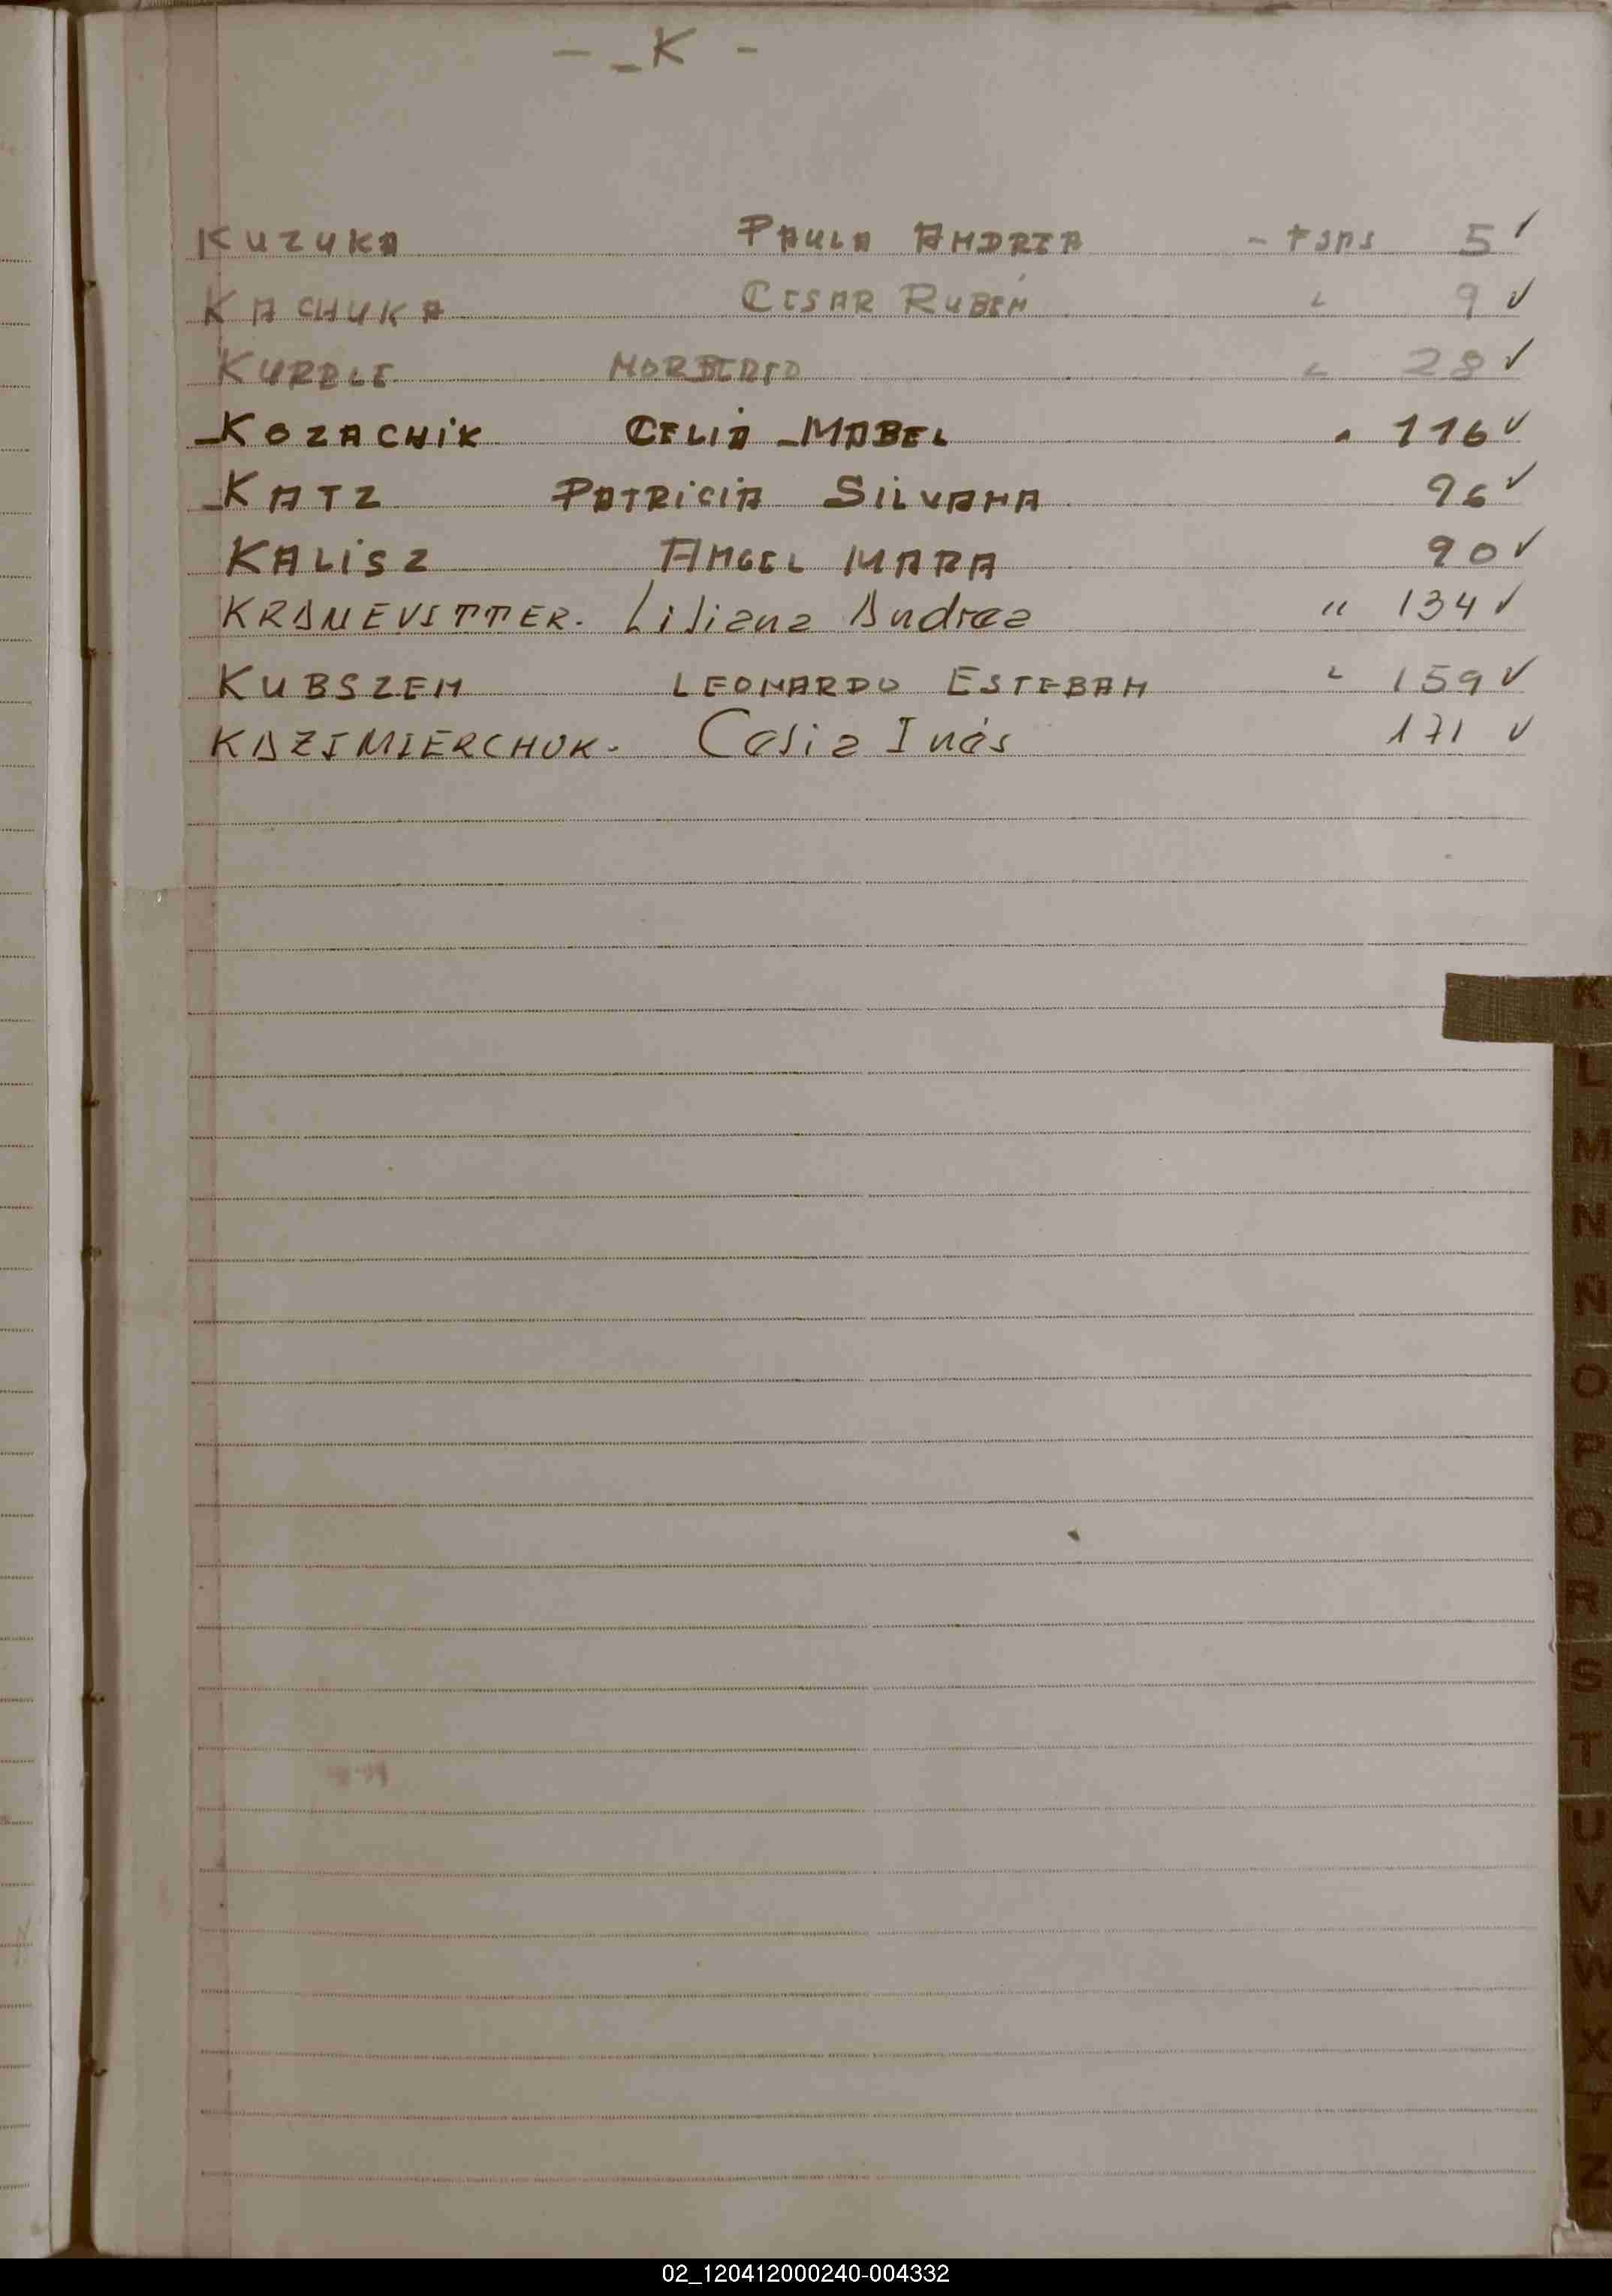 - K -
KUZUKA PAULA ANDREA - FOJAS 5 ✓
KACHUKA CESAR RUBEN " 9 ✓
NORBERTO " 28 ✓
KOZACHIK CELIA MABEL " 116 ✓
KATZ PATRICIA SILVANA 96 ✓
KALISZ ANGEL MARA 90 ✓
KRANEVITTER. Liliana Andrea " 134 ✓
KUBSZEN LEONARDO ESTEBAN " 159 ✓
KAZIMIERCHUK. Celia Inés 171 ✓
K
L
M
N
Ñ
O
P
Q
R
S
T
U
V
W
X
Y
Z
02_120412000240-004332